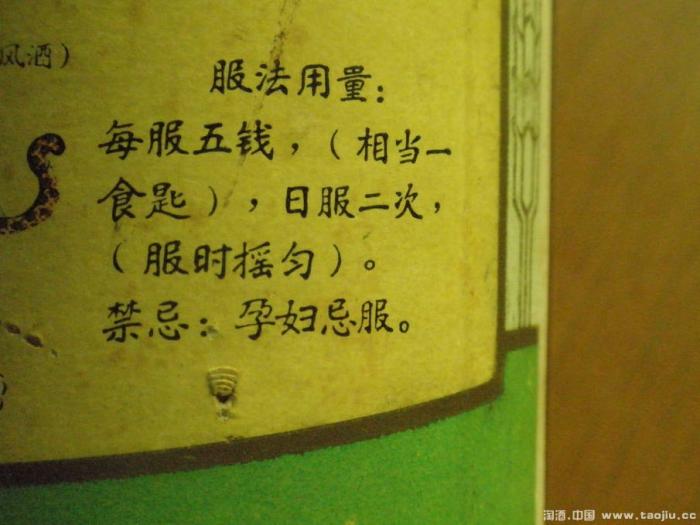 风酒）
服法用量：
每服五钱，（相当一
食匙），日服二次，
（服时摇匀）。
禁忌：孕妇忌服。
淘酒.中国 www.taojiu.cc